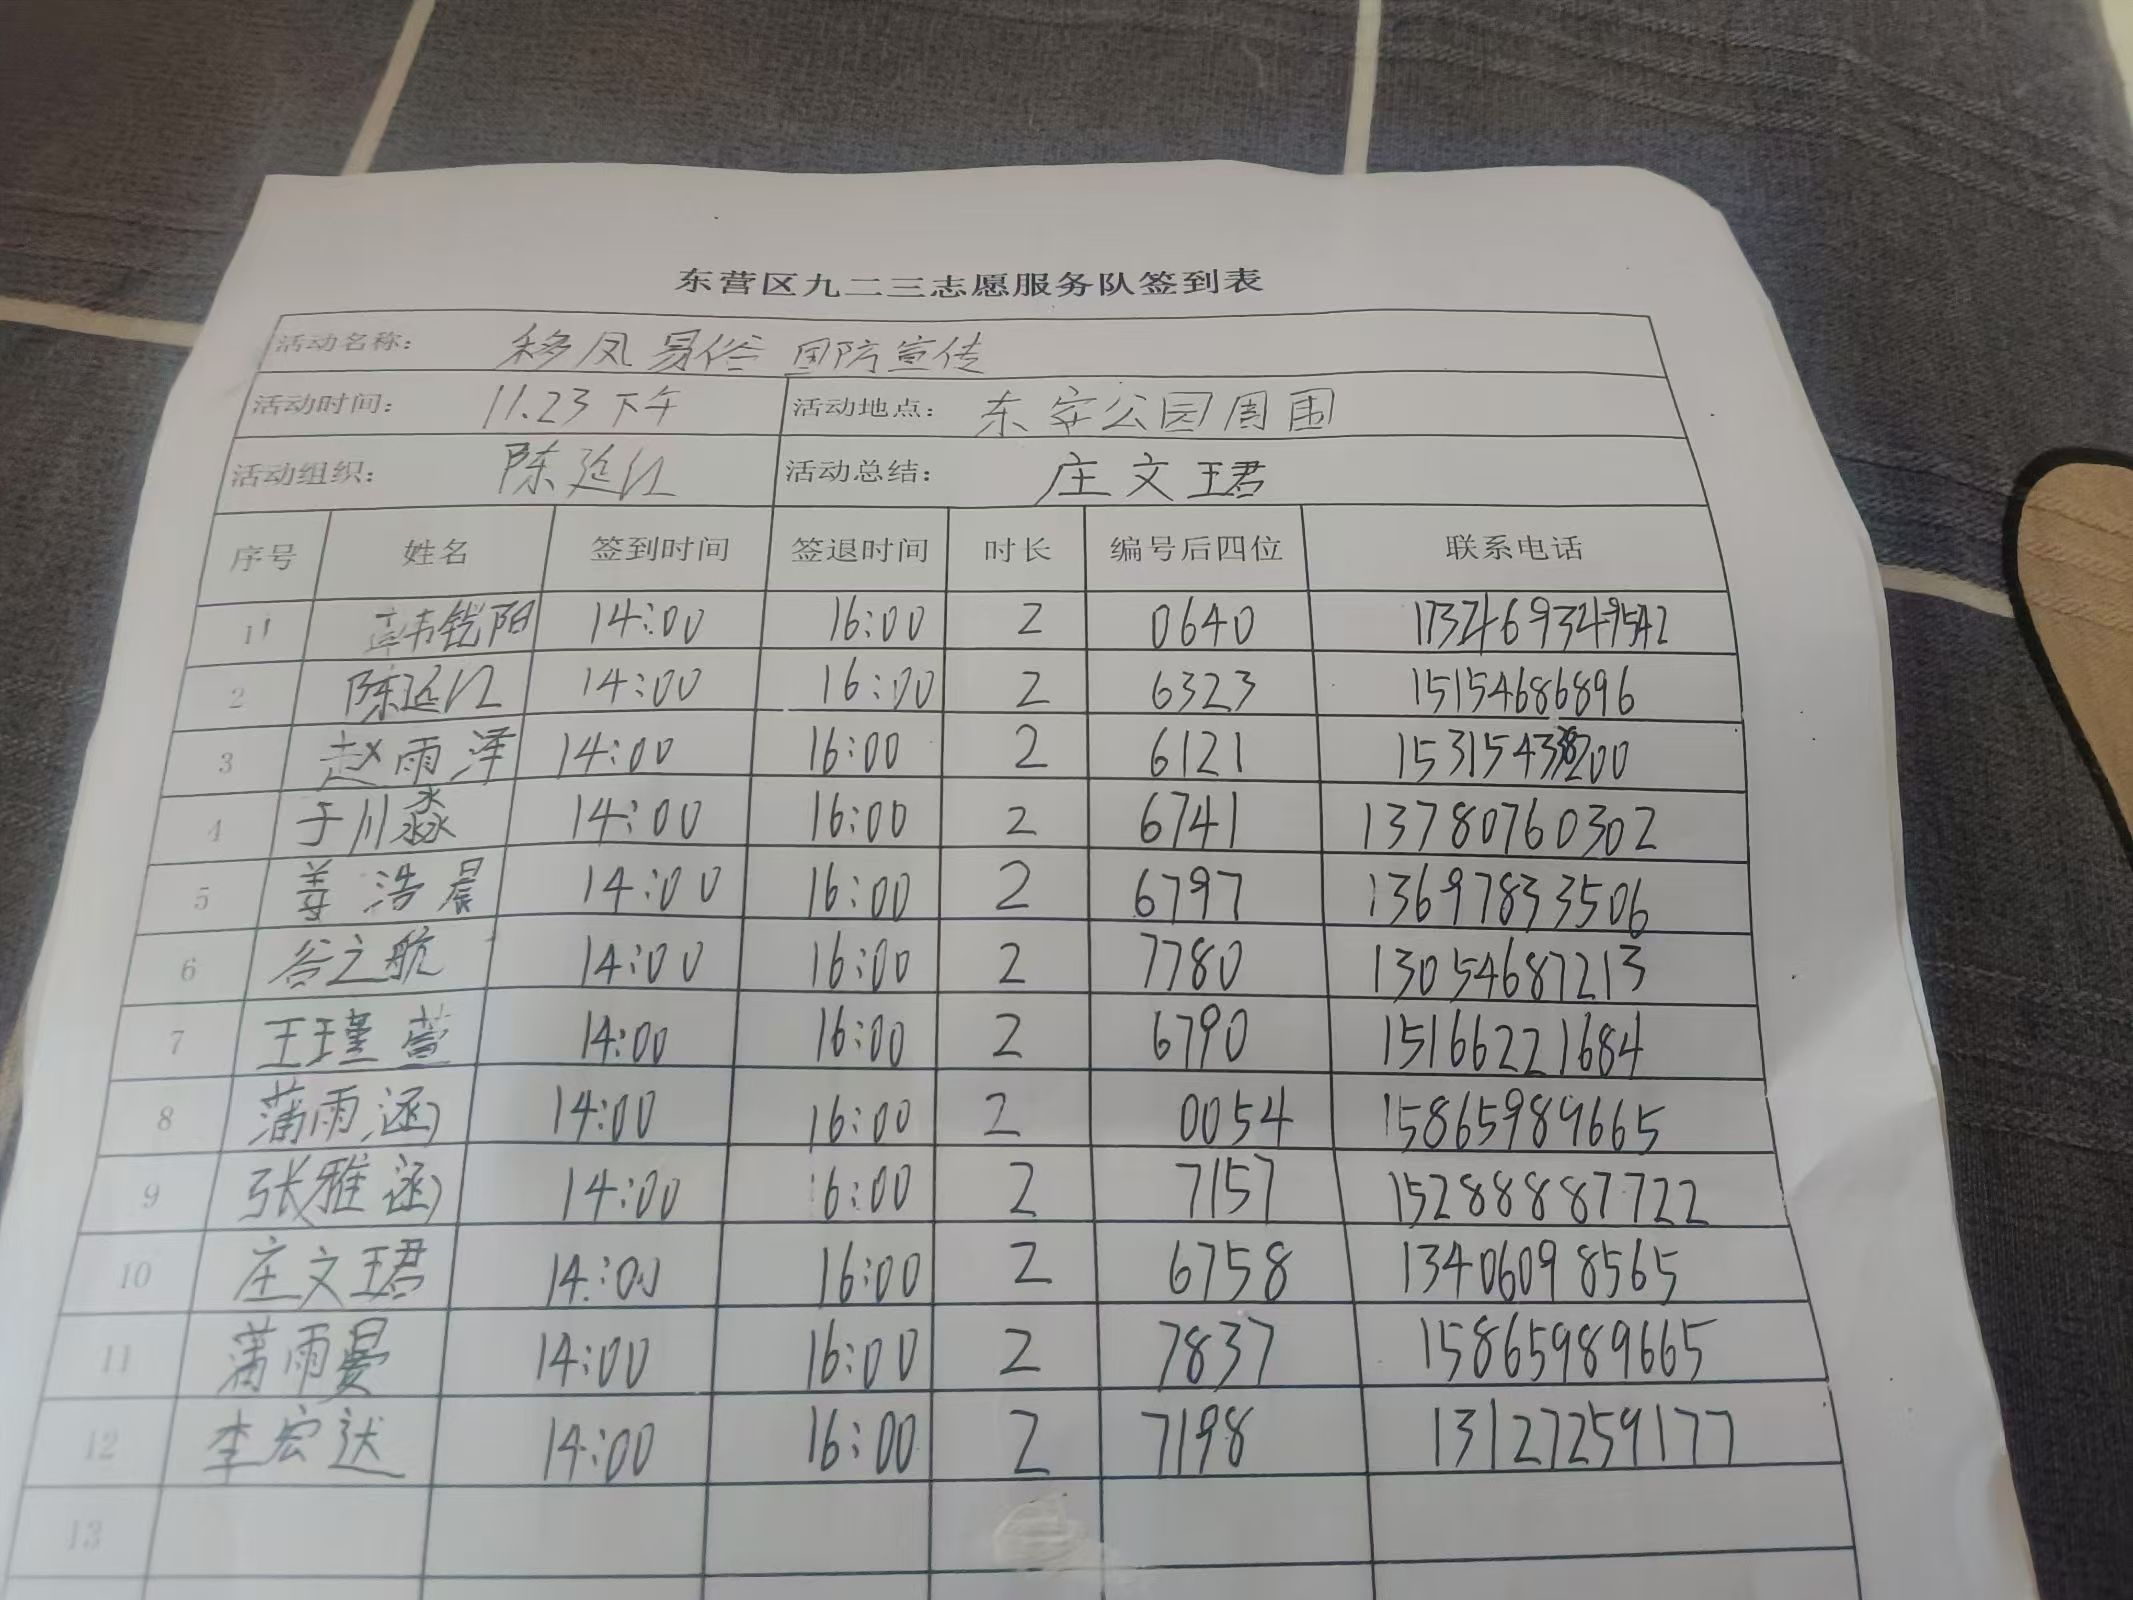 东营区九二三志愿服务队签到表
活动名称： 移风易俗 国防宣传
活动时间： 11.23下午 活动地点： 东安公园周围
活动组织： 陈延江 活动总结： 庄文珺
序号 姓名 签到时间 签退时间 时长 编号后四位 联系电话
1 韩锐阳 14:00 16:00 2 0640
2 陈延江 14:00 16:00 2 6323 15154686896
3 赵雨泽 14:00 16:00 2 6121
4 于川淼 14:00 16:00 2 6741 13780760302
5 姜浩晨 14:00 16:00 2 6797 13697833506
6 谷之航 14:00 16:00 2 7780 13054687213
7 王瑾萱 14:00 16:00 2 6790 15166221684
8 蒲雨涵 14:00 16:00 2 0054 15865989665
9 张雅涵 14:00 16:00 2 7157 15288887722
10 庄文珺 14:00 16:00 2 6758 13406098565
11 蒲雨曼 14:00 16:00 2 7837 15865989665
12 李宏达 14:00 16:00 2 7198 13127259177
13